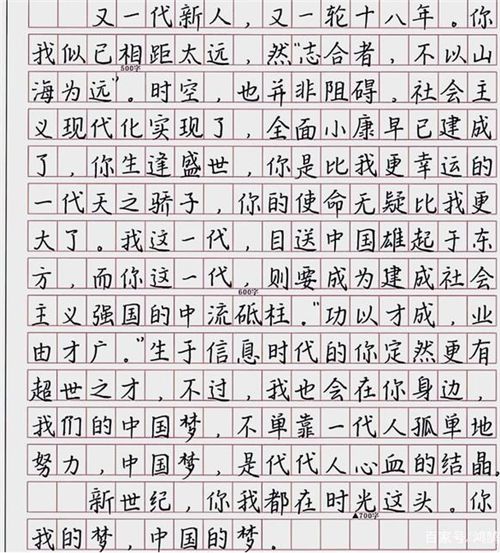 又一代新人，又一轮十八年。你
我似已相距太远，然“志合者，不以山
500字
海为远”。时空，也并非阻碍，社会主
义现代化实现了，全面小康早已建成
了，你生逢盛世，你是比我更幸运的
一代天之骄子，你的使命无疑比我更
大了。我这一代，目送中国雄起于东
方，而你这一代，则要成为建成社会
600字
主义强国的中流砥柱。“功以才成，业
由才广。”生于信息时代的你定然更有
超世之才，不过，我也会在你身边，
我们的中国梦，不单靠一代人孤单地
努力，中国梦，是代代人心血的结晶，
新世纪，你我都在时光这头。你
▲700字
我的梦，中国的梦．
百家号/